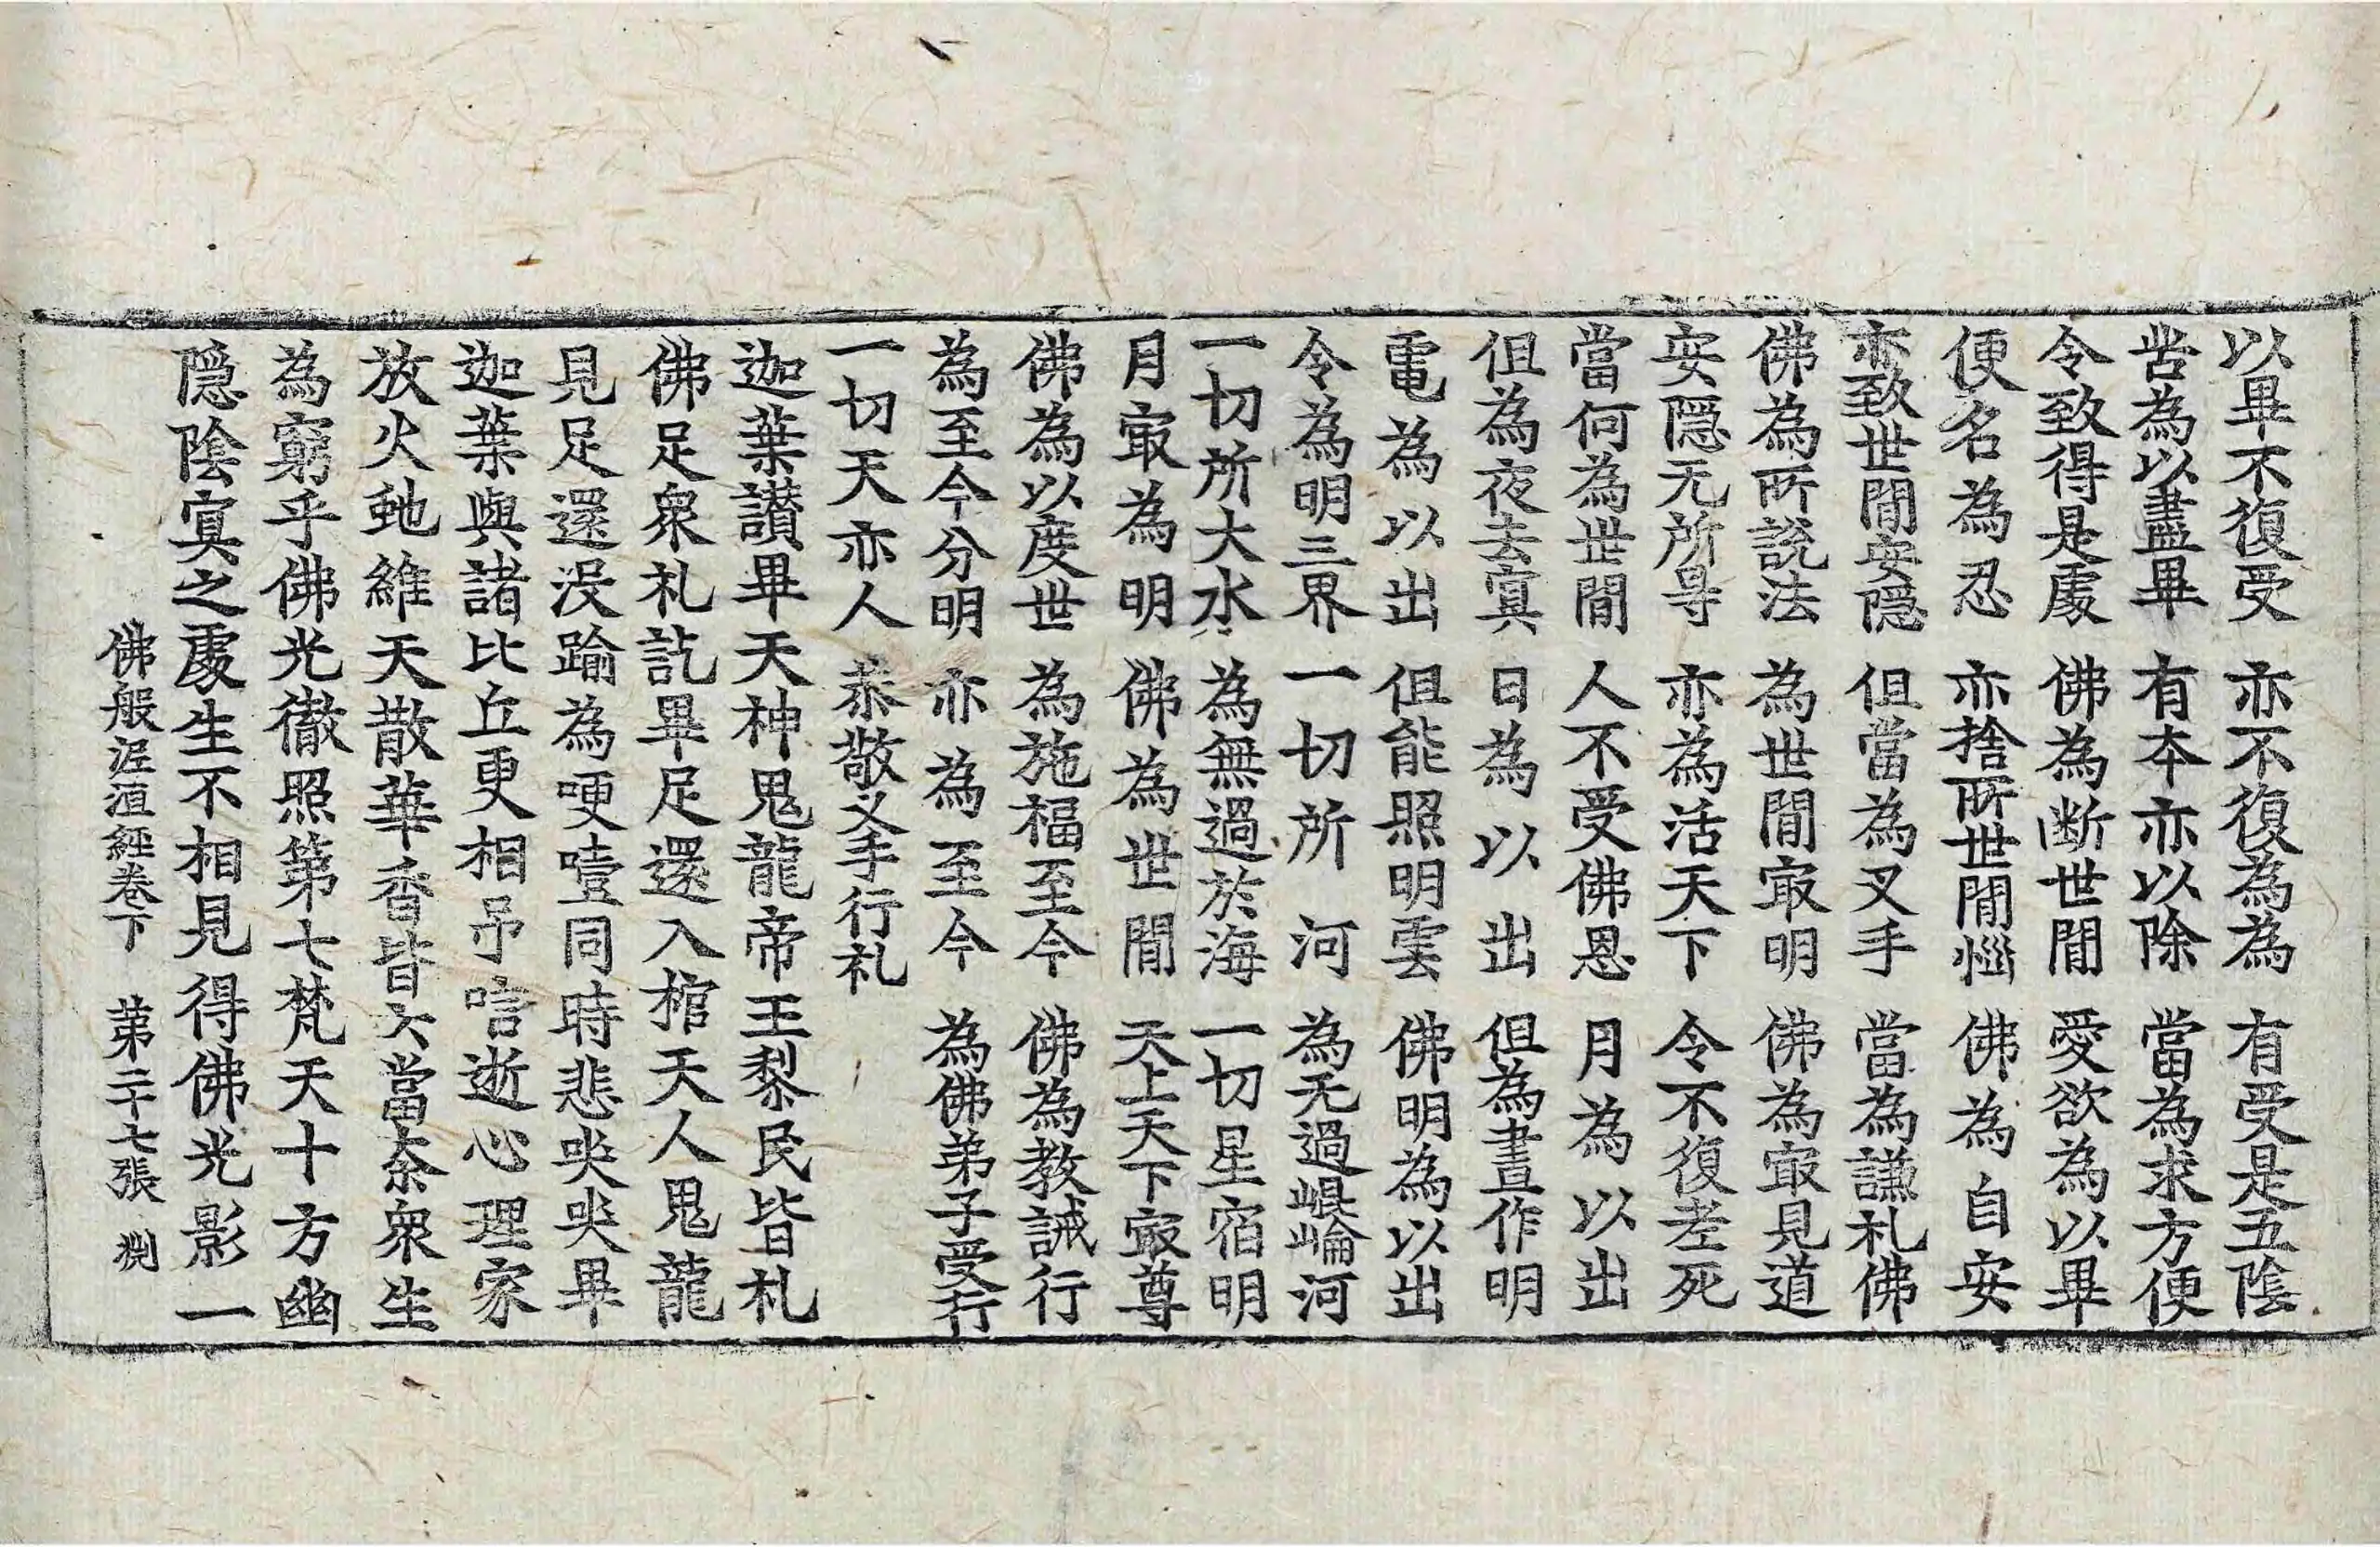 以畢不復受　亦不復為為　有受是五陰
苦為以盡畢　有本亦以除　當為求方便
令致得是處　佛為断世間　愛欲為以畢
便名為忍　亦捨所世間惱　佛為自安
亦致世間安隱　但當為叉手　當為謙礼佛
佛為所說法　為世間㝡明　佛為㝡見道
安隱无所㝵　亦為活天下　令不復老死
當何為世間　人不受佛恩　月為以出
但為夜去冥　日為以出　但為晝作明
電為以出　但能照明雲　佛明為以出
令為明三界　一切所河　為无過崐崘河
一切所大水　為無過於海　一切星宿明
月㝡為明　佛為世間　天上天下㝡尊
佛為以度世　為施福至今　佛為教誡行
為至今分明　亦為至今　為佛弟子受行
一切天亦人　恭敬叉手行礼
迦葉讃畢天神鬼龍帝王黎民皆礼
佛足衆礼訖畢足還入棺天人鬼龍
見足還没踰為哽噎同時悲哭哭畢
迦葉與諸比丘更相弔唁逝心理家
放火虵維天散華香皆云當柰衆生
為窮乎佛光徹照第七梵天十方幽
隱陰冥之處生不相見得佛光影一
佛般泥洹經卷下　第二十七張